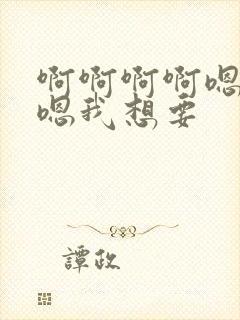 啊啊啊啊嗯
嗯我想要
譚政